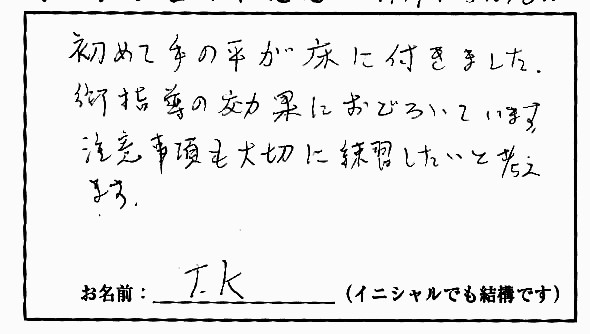 初めて手の平が床に付きました.
御指導の効果におどろいています
注意事項も大切に練習したいと考え
ます.
お名前： T.K （イニシャルでも結構です）